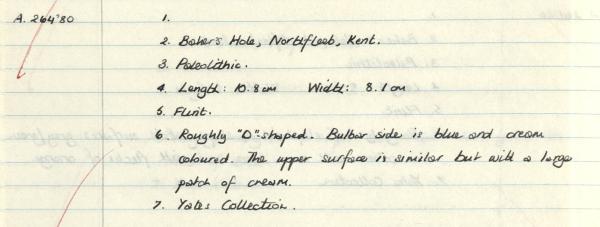 A. 264'80 1.
2. Baker's Hole, Northfleet, Kent.
3. Paleolithic.
4. Length: 10.8cm Width: 8.1cm
5. Flint.
6. Roughly "D"-shaped. Bulbar side is blue and cream
coloured. The upper surface is similar but with a large
patch of cream.
7. Yates Collection.